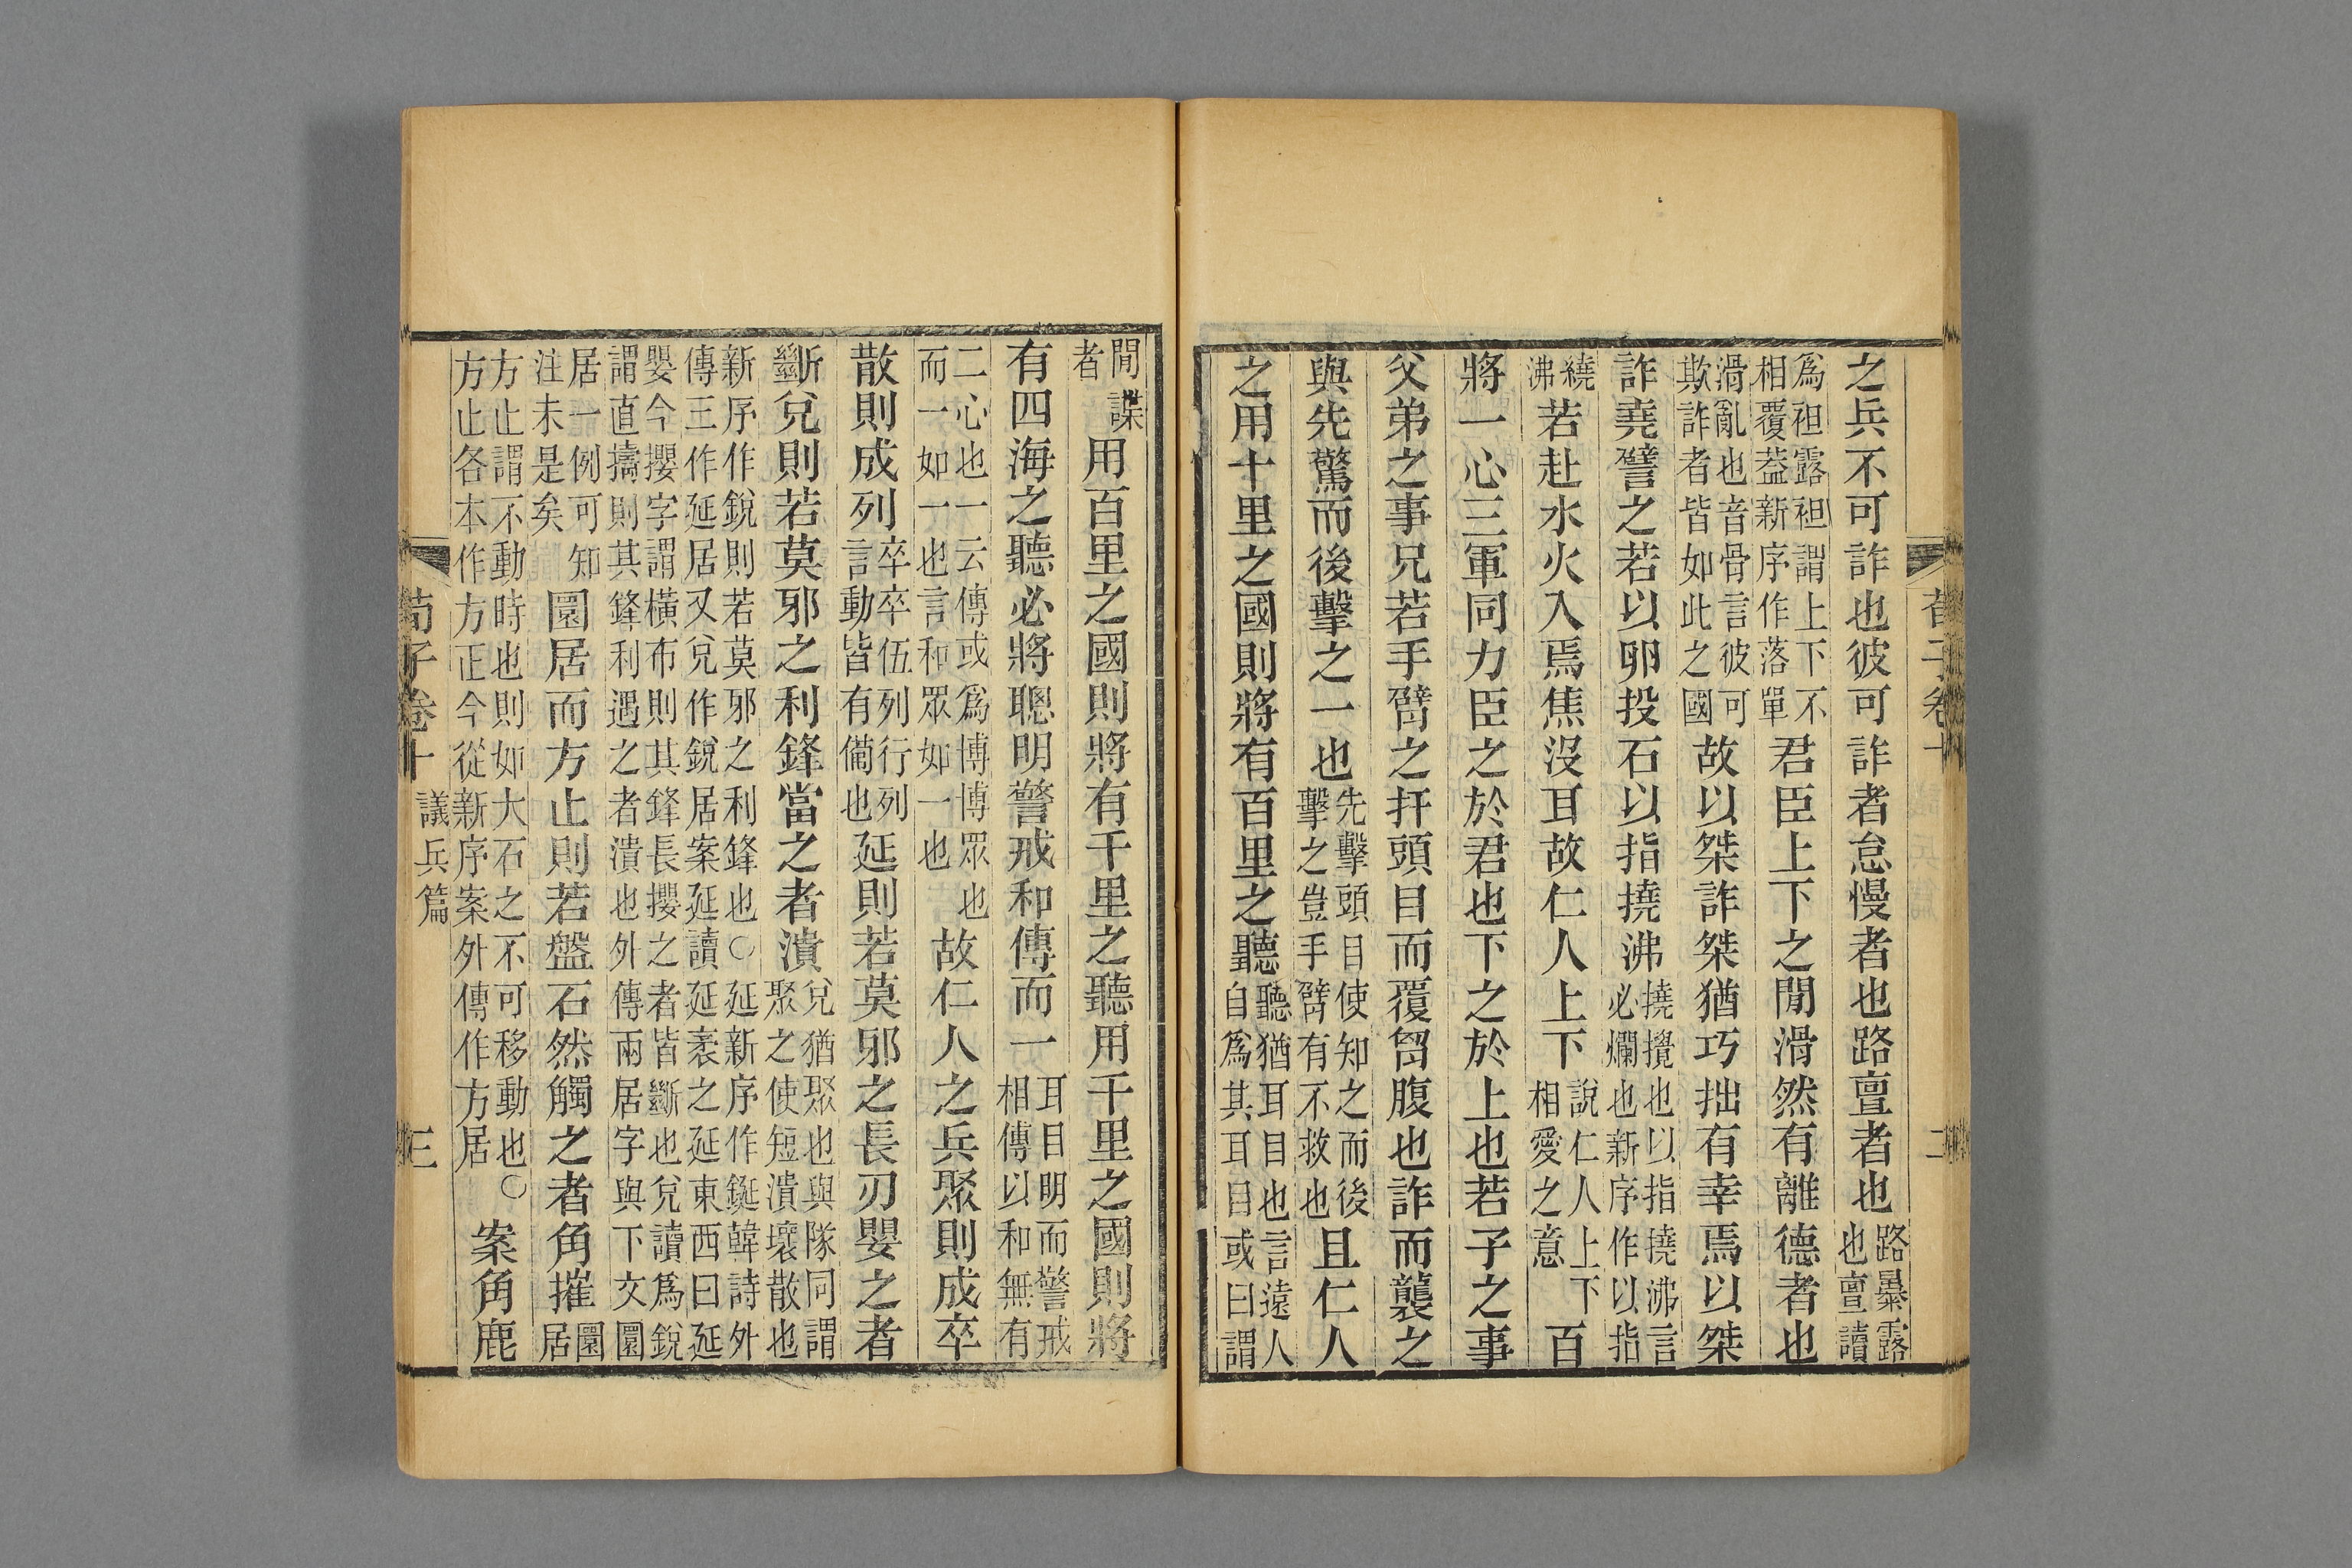 之兵不可詐也彼可詐者怠慢者也路亶者也路暴露也亶讀
爲袒露袒謂上下不相覆葢新序作落單君臣上下之閒滑然有離德者也
滑亂也音骨言彼可欺詐者皆如此之國故以桀詐桀猶巧拙有幸焉以桀
詐堯譬之若以卵投石以指撓沸撓攪也以指撓沸言必爛也新序作以指
繞沸若赴水火入焉焦沒耳故仁人上下說仁人上下相愛之意百
將一心三軍同力臣之於君也下之於上也若子之事
父弟之事兄若手臂之扞頭目而覆胷腹也詐而襲之
與先驚而後擊之一也先擊頭目使知之而後擊之豈手臂有不救也且仁人
之用十里之國則將有百里之聽聽猶耳目也言遠人自爲其耳目或曰謂
閒諜者用百里之國則將有千里之聽用千里之國則將
有四海之聽必將聰明警戒和傳而一耳目明而警戒相傳以和無有
二心也一云傳或爲博博眾也而一如一也言和眾如一也故仁人之兵聚則成卒
散則成列卒卒伍列行列言動皆有備也延則若莫邪之長刃嬰之者
斷兌則若莫邪之利鋒當之者潰兌猶聚也與隊同謂聚之使短潰壞散也
新序作作銳則若莫邪之利鋒也○延新序作鋋韓詩外傳三作延居又兌作銳居案延讀延袤之延東西曰延
嬰今攖字謂橫布則其鋒長攖之者皆斷也兌讀爲銳謂直擣則其鋒利遇之者潰也外傳兩居字與下文圜
居一例可知注未是矣圜居而方止則若盤石然觸之者角摧圜居
方止謂不動時也則如大石之不可移動也○方止各本作方正今從新序案外傳作方居案角鹿
荀子卷十 議兵篇 三